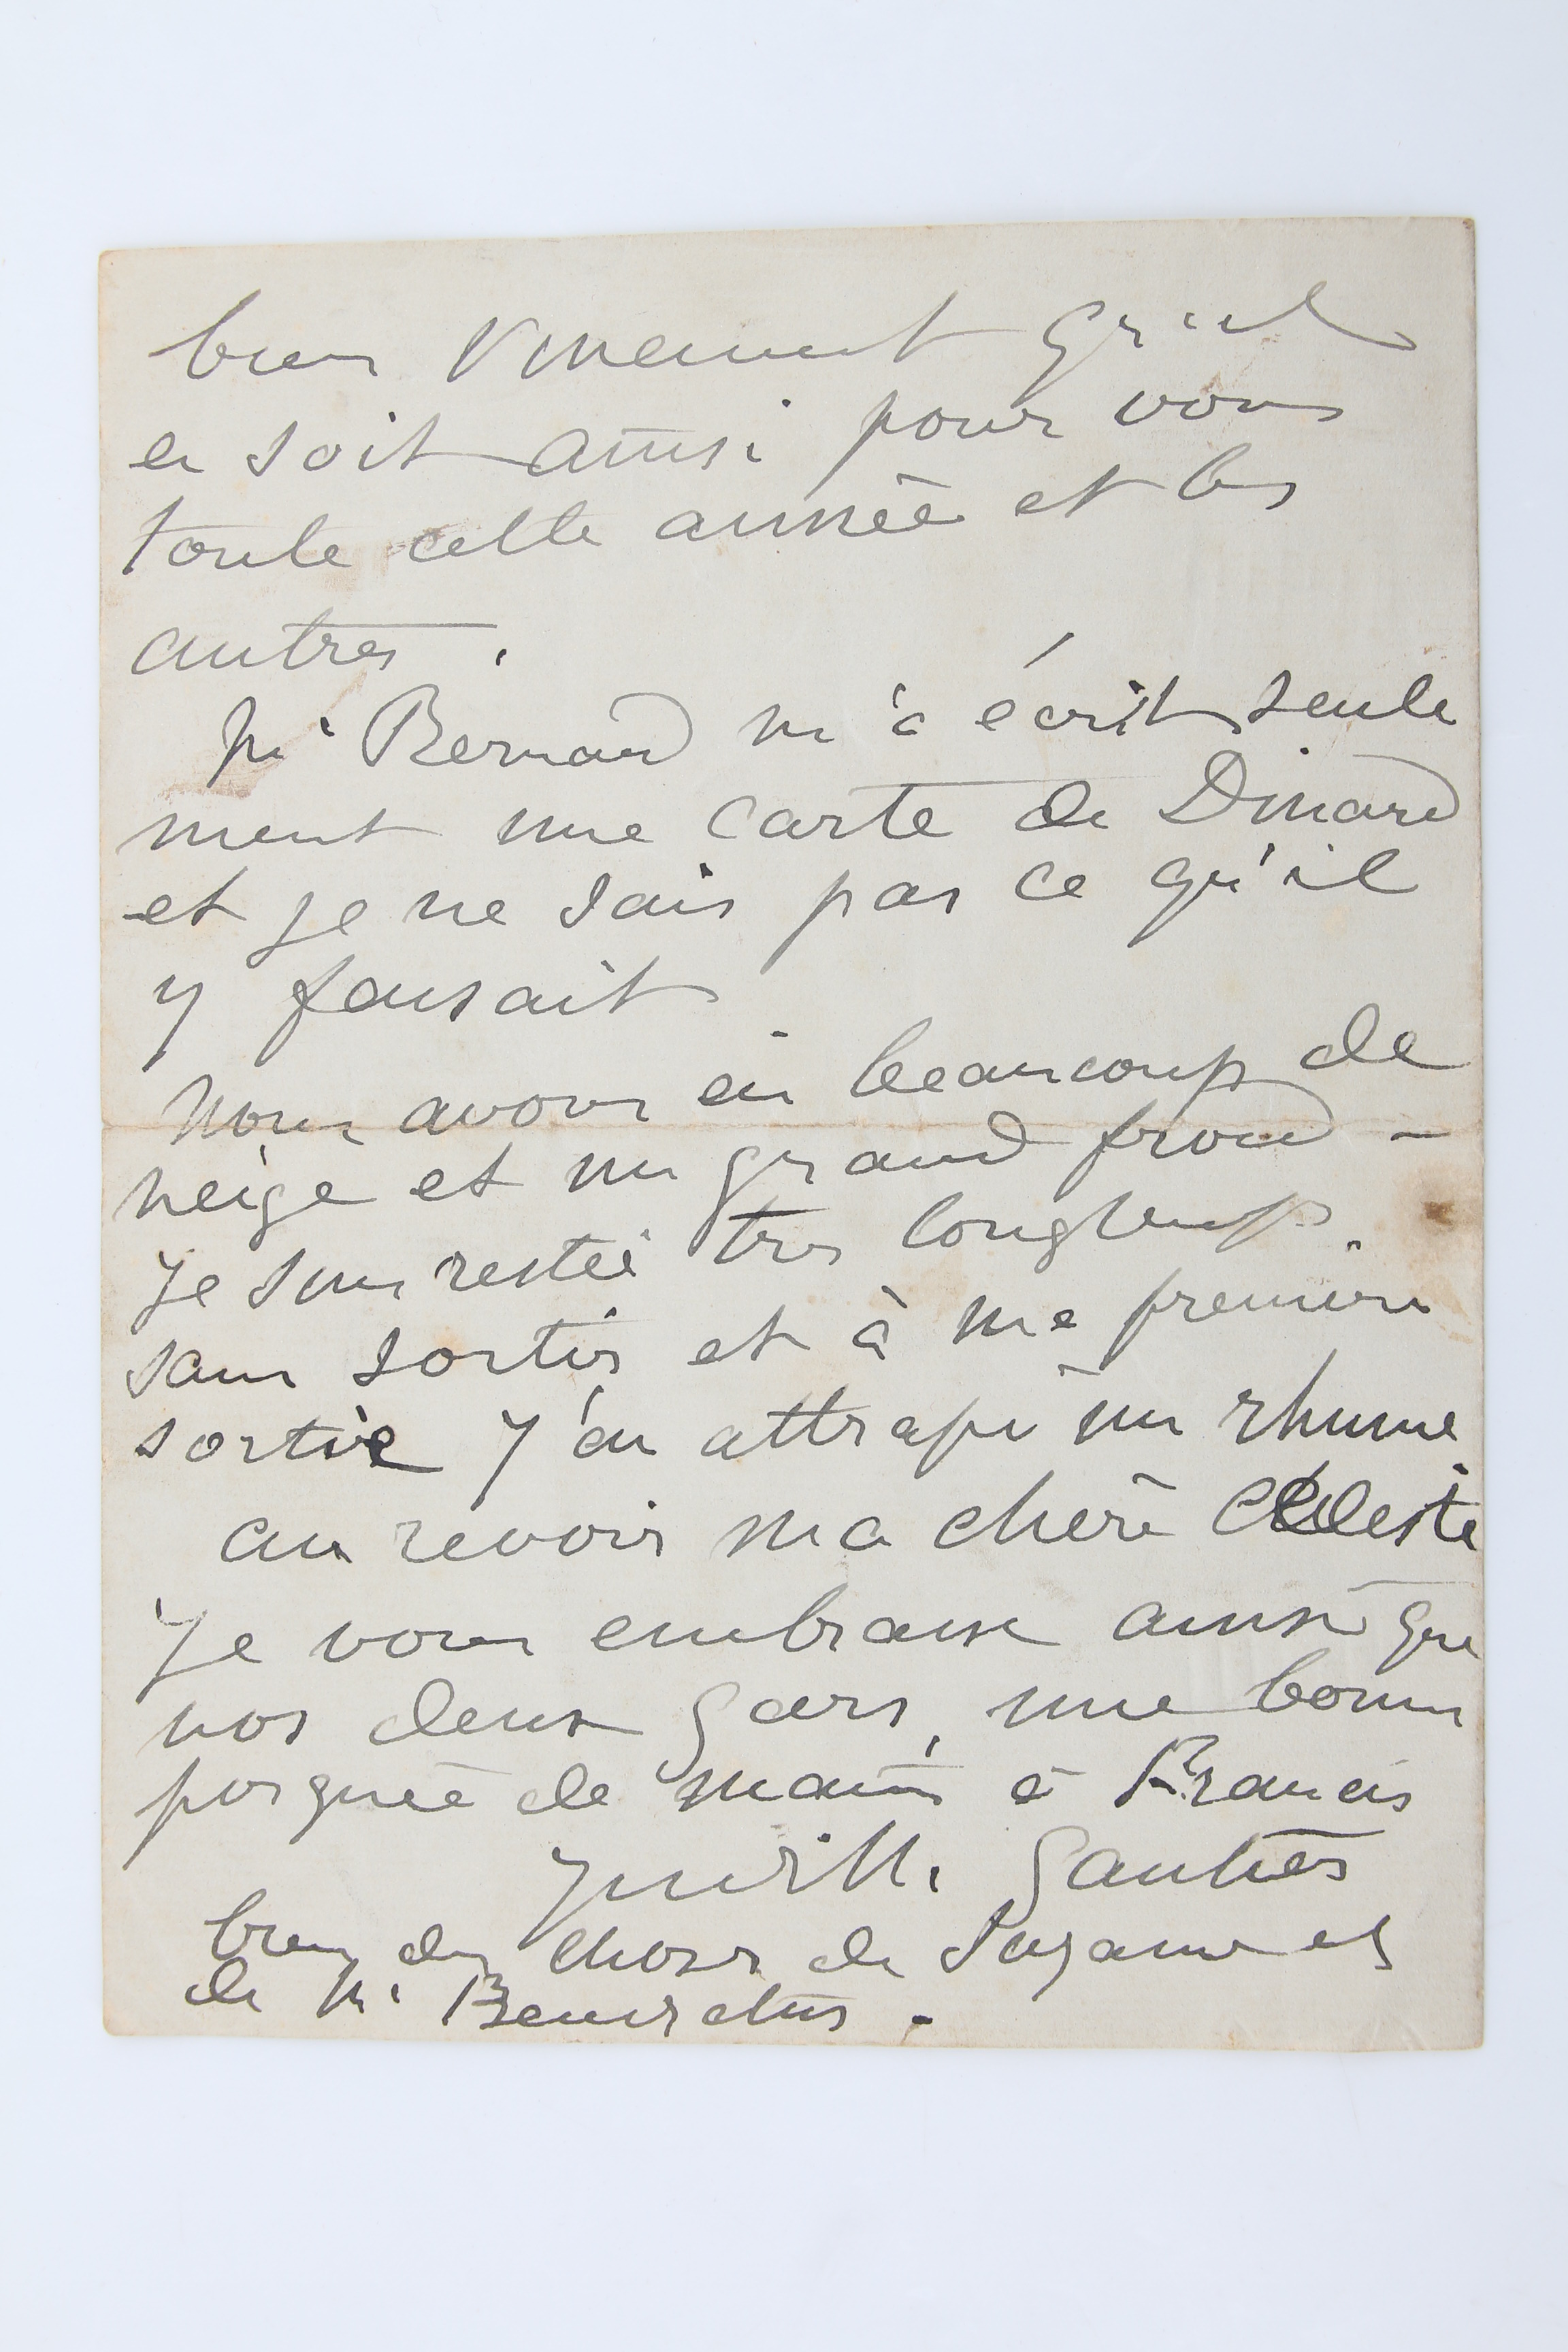 bien vivement qu'il
en soit ainsi pour vous
toute cette année et les
autres.
Mr Bernard m'a écrit seule
ment une carte de Dinard
et je ne sais pas ce qu'il
y faisait
Nous avons eu beaucoup de
neige et un grand froid –
Je suis restée très longtemps
sans sortir et à ma première
sortie j'ai attrapé un rhume
au revoir ma chère Céleste
Je vous embrasse ainsi que
vos deux gars, une bonne
poignée de main à Francis
Judith Gautier
bien des choses de Suzanne et
de Mr Benedictus.